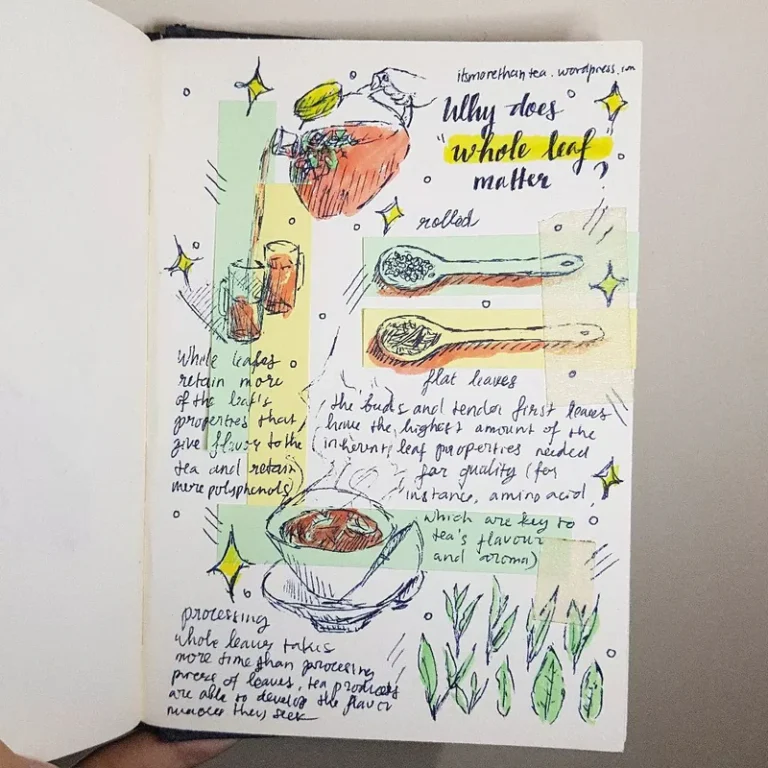 itsmorethantea.wordpress.com
Why does
"whole leaf"
matter ?
rolled
flat leaves
Whole leafes
retain more
of the leaf's
properties that
give flavor to the
tea and retain
more polyphenols
the buds and tender first leaves
have the highest amount of the
inherent leaf properties needed
for quality (for
instance, amino acid,
which are key to
tea's flavour
and aroma)
processing
whole leaves takes
more time than processing
pieces of leaves, tea producers
are able to develop the flavor
nuances they seek